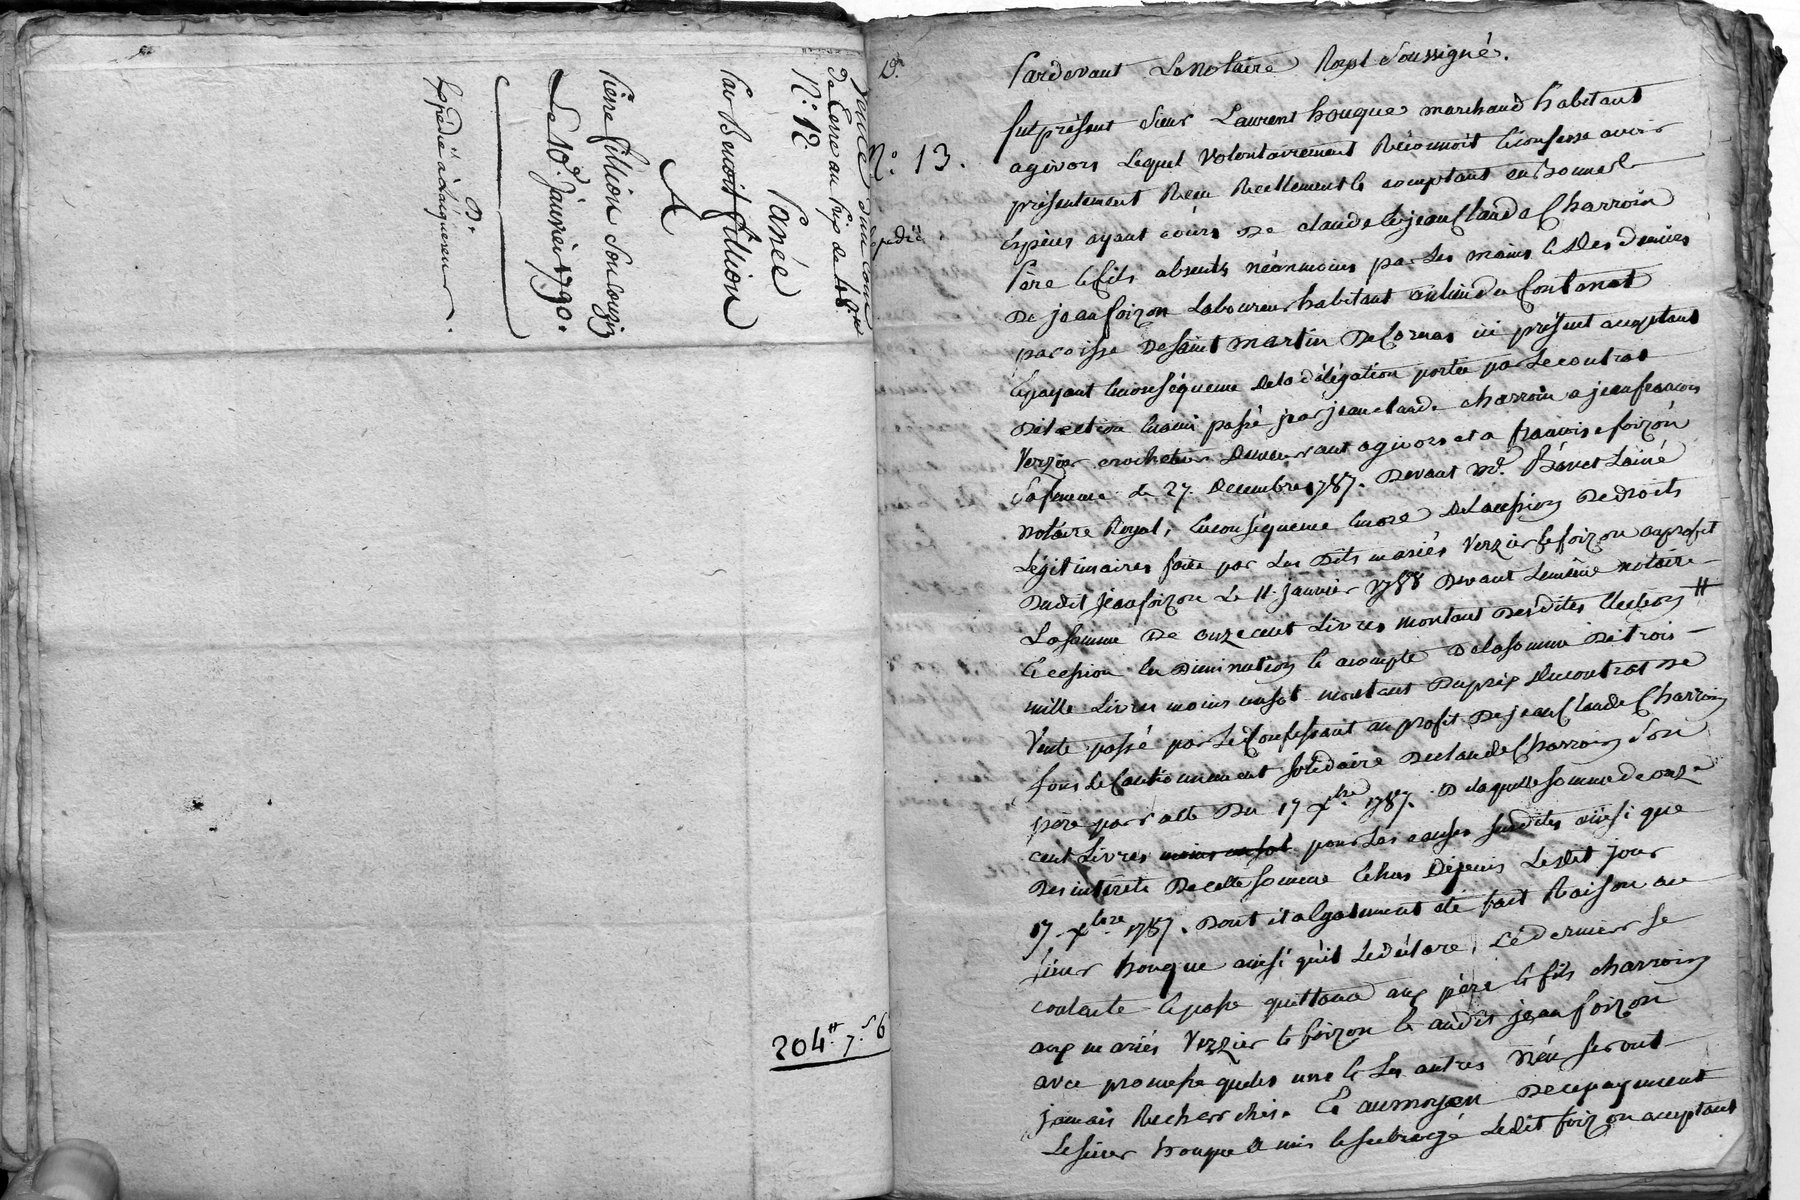 Vente d'un coin
De Terre au Prix de 48.ᵗᵗ
N.° 12
Passée
Par Benoit fillion
A
Pierre fillion Son Cousin
Le 10.ᵉ Janvier 1790.
D.
Expédié à l'acquereur.
204.ᵗᵗ 7.ˢ 6
D.ⁿ
N.° 13.
expédié
Pardevant Le Notaire Royal Soussigné.
fut présent Sieur Laurent houque marchand habitant
a givors Lequel Volontairement Reconnoit & confesse avoir
présentement Recu Reellement & comptant en Bonnes
Espèces ayant cours De claude & jean Claude Charroin
Père & fils absents néanmoins par Les mains & Des deniers
De jean foizon Laboureur habitant au lieu de
paroisse De Saint martin De Cornas ici présent acceptant
& payant En conséquence De la délégation portée par Le contrat
passé par jean claude charroin a jean francois
Verzier crocheteur Demeurant a givors et a francoise foizon
Sa femme le 27. Decembre 1787. Devant M.ᵉ Lainé
notaire Royal, En conséquence Encore De La cession De droits
Légitimaires faite par Les Dits mariés Verzier & foizon au profit
Dudit Jean foizon Le 11. Janvier 1788 Devant Le même notaire
La Somme De onze cent Livres montant Des dites
& cession En Diminution & acompte De la Somme De trois
mille Livres moins un sol montant Du prix Du contrat De
Vente passé par Le Confessant au profit De jean Claude Charroin
sous Le Cautionnement Solidaire De claude Charroin Son
père par acte Du 17 xbre 1787. De laquelle Somme de onze
cent Livres moins un sol pour Les causes Susdites ainsi que
Des intérêts De cette Somme Echus Depuis Le dit jour
17 xbre 1787. Dont il a également été fait Raison au
Sieur houque ainsi qu'il Le déclare, Ce dernier Se
contente & passe quittance aux père & fils charroin
aux mariés Verzier & foizon & audit jean foizon
avec promesse que les uns & Les autres N'en Seront
jamais Recherchés. Et au moyen De ce payement
Le Sieur houque a mis & subrogé Ledit foizon acceptant